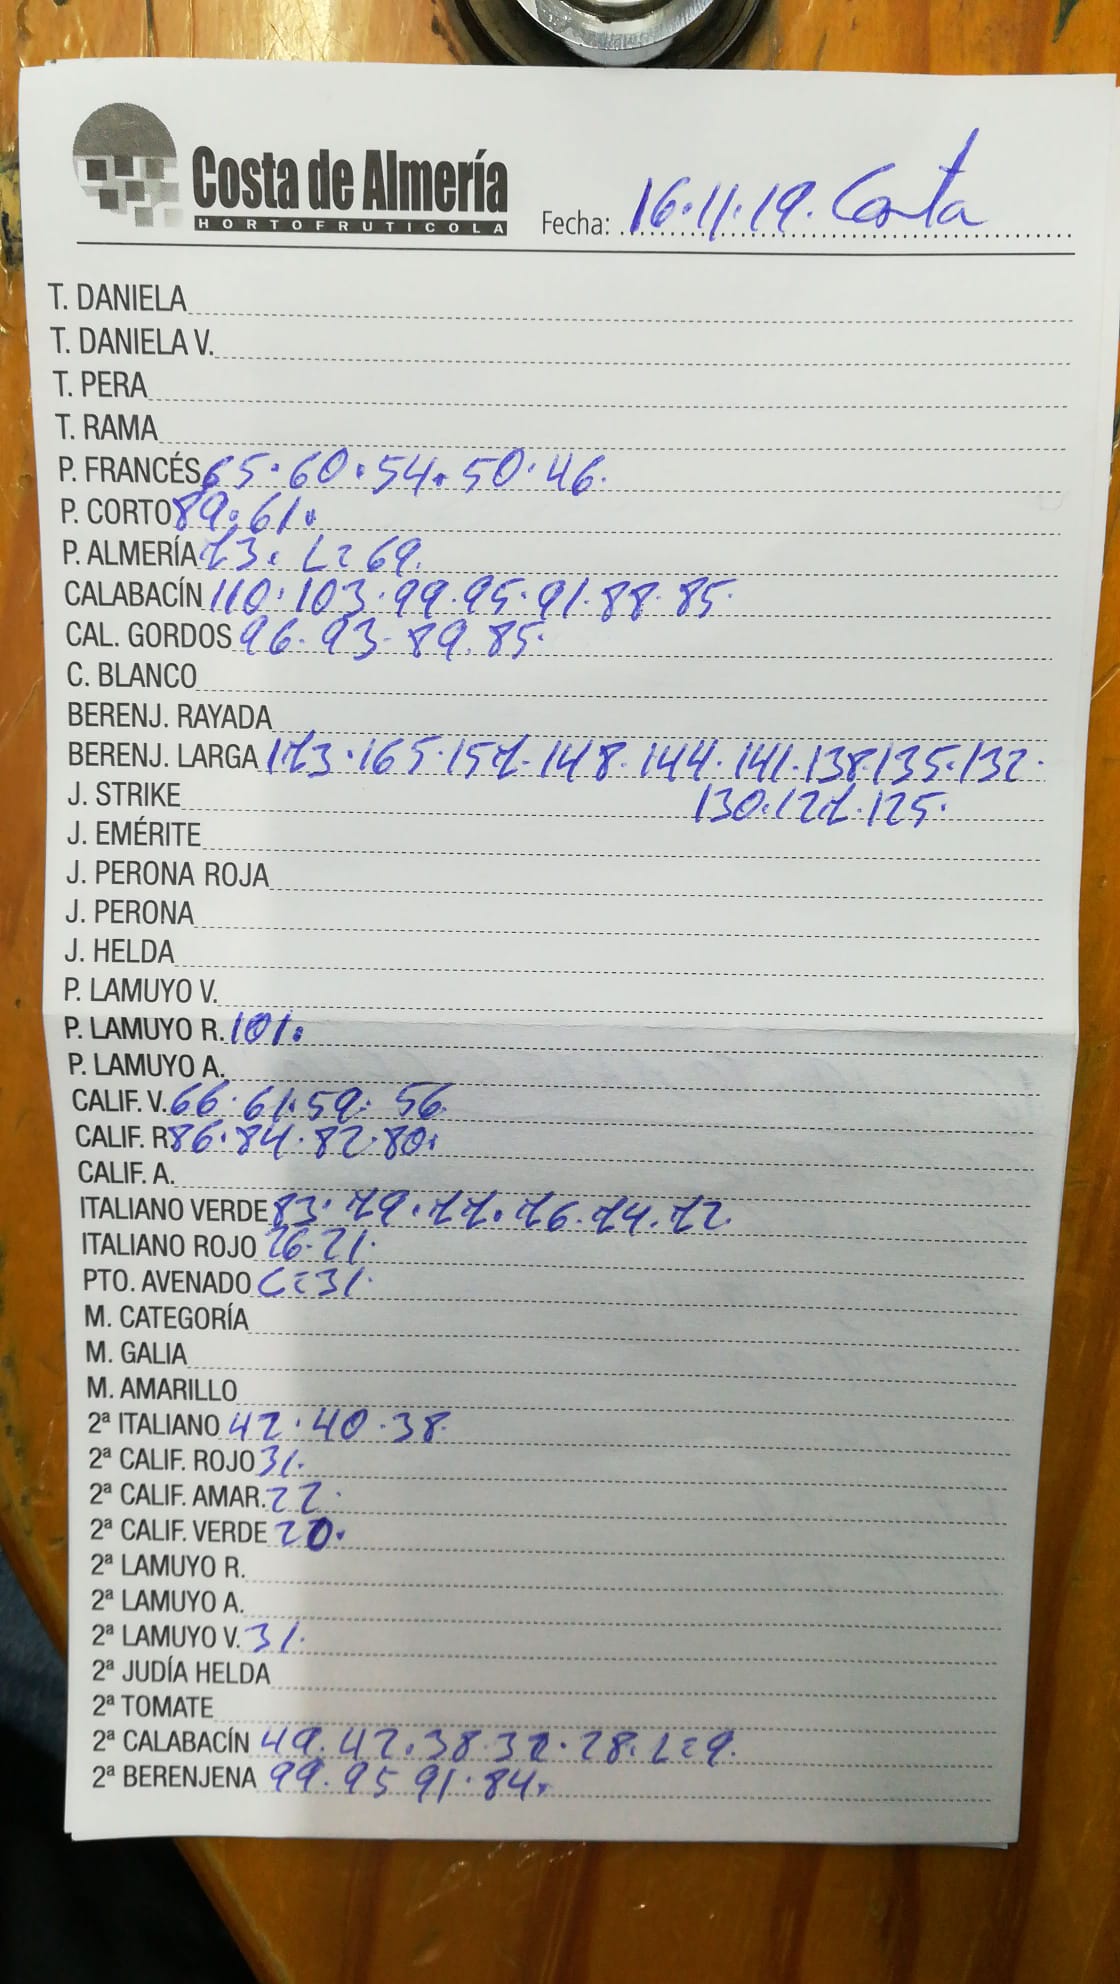 Costa de Almería
HORTOFRUTICOLA
Fecha: 16.11.19. Costa
T. DANIELA
T. DANIELA V.
T. PERA
T. RAMA
P. FRANCÉS 65.60.54.50.46.
P. CORTO 89.61.
P. ALMERÍA 73. L=69.
CALABACÍN 110.103.99.95.91.88.85.
CAL. GORDOS 96.93-89.85.
C. BLANCO
BERENJ. RAYADA
BERENJ. LARGA 173.165.157.148.144.141.138.135.132.
J. STRIKE 130.127.125.
J. EMÉRITE
J. PERONA ROJA
J. PERONA
J. HELDA
P. LAMUYO V.
P. LAMUYO R. 101.
P. LAMUYO A.
CALIF. V. 66.61.59. 56.
CALIF. R 86.84.82.80.
CALIF. A.
ITALIANO VERDE 83.79.77.76.74.72.
ITALIANO ROJO 26.21.
PTO. AVENADO C=31.
M. CATEGORÍA
M. GALIA
M. AMARILLO
2ª ITALIANO 42.40.38.
2ª CALIF. ROJO 31.
2ª CALIF. AMAR. 22.
2ª CALIF. VERDE 20.
2ª LAMUYO R.
2ª LAMUYO A.
2ª LAMUYO V. 31.
2ª JUDÍA HELDA
2ª TOMATE
2ª CALABACÍN 49.42.38.32.28. L=9.
2ª BERENJENA 99.95 91.84.